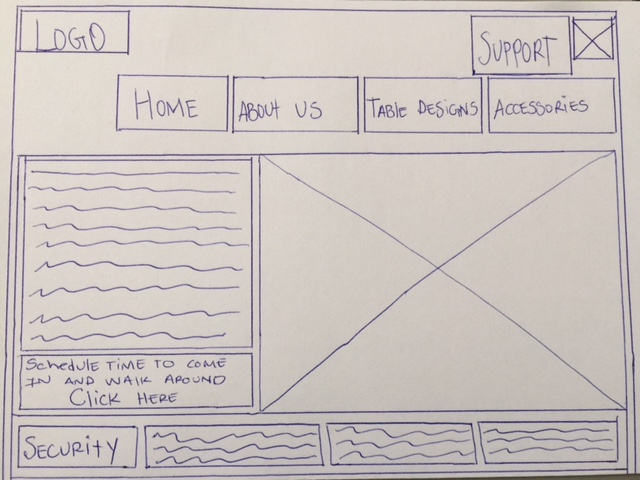 LOGO
SUPPORT
HOME
ABOUT US
TABLE DESIGNS
ACCESSORIES
Schedule TIME TO COME
IN AND WALK AROUND
Click HERE
SECURity